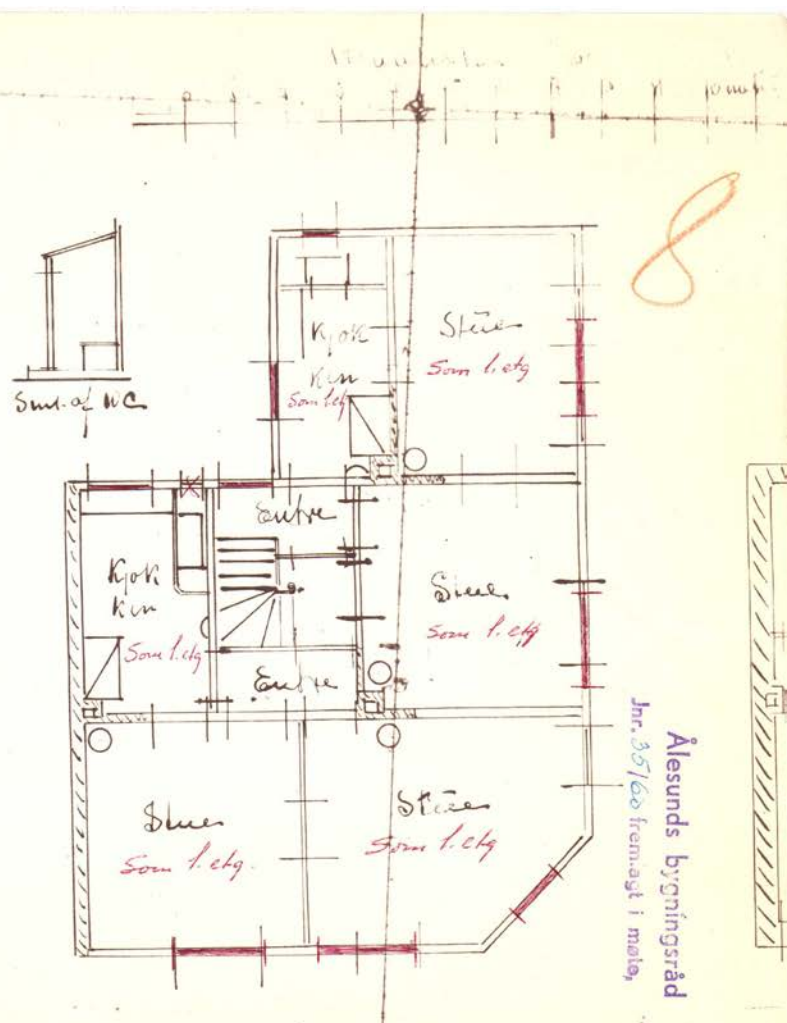 8
Snit af WC
Kjøk
ken
Som 1. etg
Stue
Som 1. etg
Entre
Kjøk
ken
Som 1. etg
Stue
Som 1. etg
Entre
Stue
Som 1. etg.
Stue
Som 1. etg
Ålesunds bygningsråd
Jnr. 35/60 fremlagt i møte,